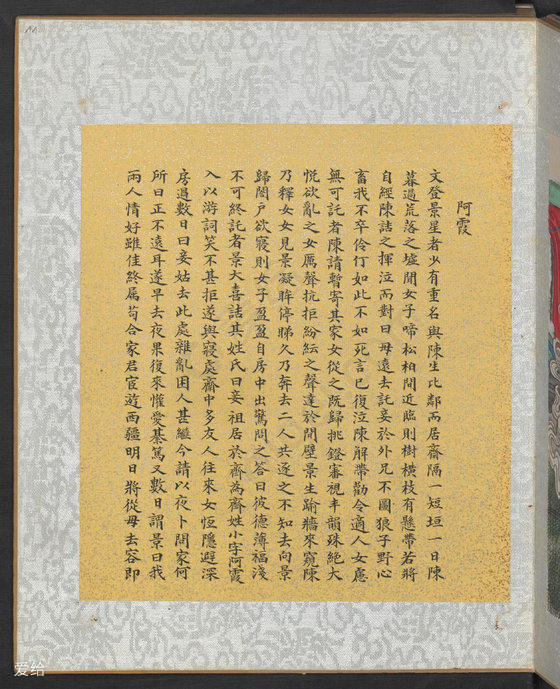 阿霞
文登景星者少有重名與陳生比鄰而居齋隔一短垣一日陳
暮過荒落之墟聞女子啼松柏間近臨則樹橫枝有懸帶若將
自經陳詰之揮泣而對曰母遠去託妾於外兄不圖狼子野心
畜我不卒伶仃如此不如死言已復泣陳解帶勸令適人女慮
無可託者陳請暫寄其家女從之既歸挑鐙審視丰韻殊絕大
悅欲亂之女厲聲抗拒紛紜之聲達於間壁景生踰牆來窺陳
乃釋女女見景凝眸停睇久乃奔去二人共逐之不知去向景
歸闔戶欲寢則女子盈盈自房中出驚問之答曰彼德薄福淺
不可終託者景大喜詰其姓氏曰妾祖居於齊為齊姓小字阿霞
入以游詞笑不甚拒遂與寢處齋中多友人往來女恆隱避深
房過數日曰妾姑去此處雜亂困人甚繼今請以夜卜問家何
所曰正不遠耳遂早去夜果復來懽愛綦篤又數日謂景曰我
兩人情好雖佳終屬苟合家君宦遊西疆明日將從母去容即
爱给